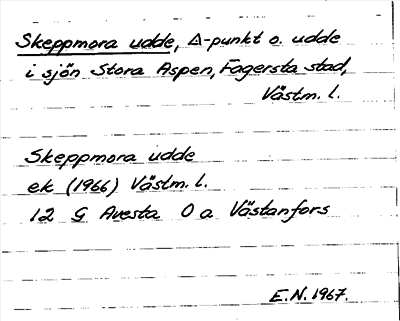 Skeppmora udde, Δ-punkt o. udde
i sjön Stora Aspen, Fagersta stad,
Västm. l.
Skeppmora udde
ek (1966) Västm. l.
12 G Avesta O a Västanfors
E.N. 1967.